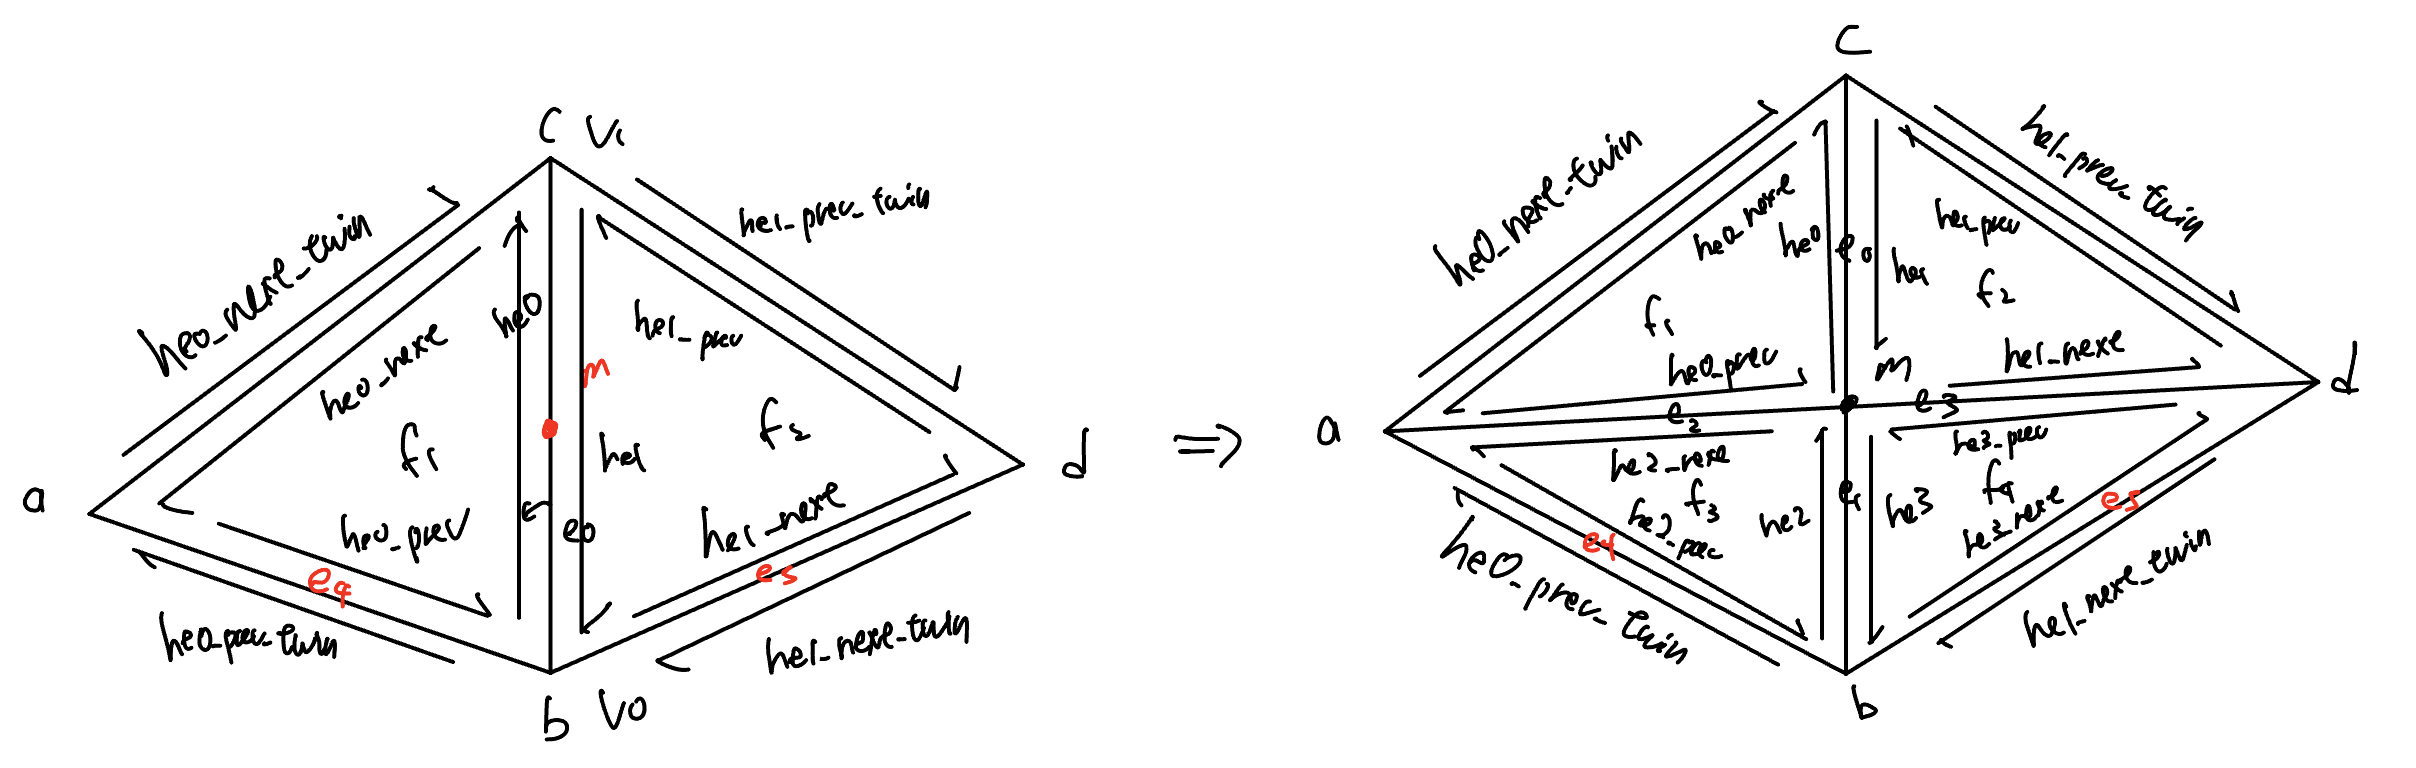 c v1
he0_next_twin
he1_prev_twin
he0
he0_next
m
he1_prev
f1
he1
f2
a
d
he0_prev
e0
he1_next
e4
e5
he0_prev_twin
he1_next_twin
b v0
⇒
c
he0_next_twin
he1_prev_twin
he0_next
he0
e0
he1
he1_prev
f1
f2
he0_prev
m
he1_next
a
e2
e3
d
he2_next
he3_prev
f3
he2
e1
he3
f4
he2_prev
he3_next
e4
e5
he0_prev_twin
he1_next_twin
b